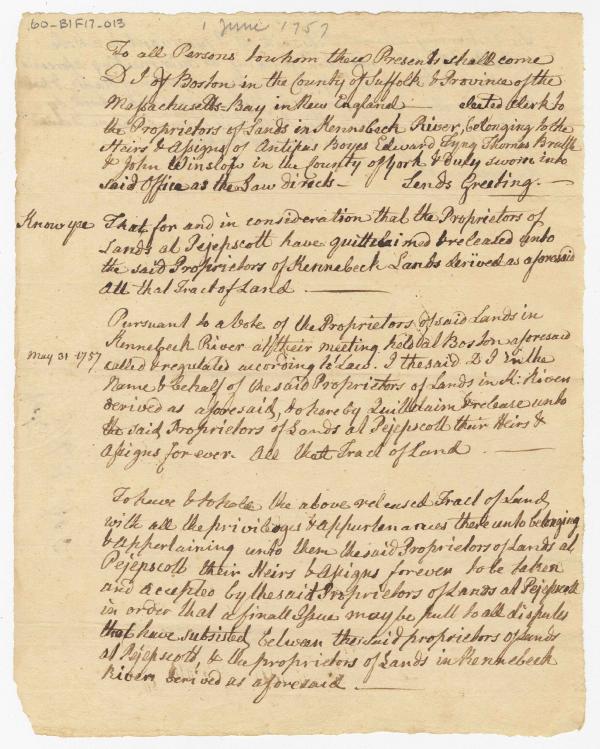 60-B1F17-013
1 June 1757
To all Persons to whom these Presents shall come
D I of Boston in the County of Suffolk & Province of the
Massachusetts-Bay in New England elected Clerk to
the Proprietors of Lands in Kennebeck River, belonging to the
Heirs & Assigns of Antipas Boyes Edward Tyng Thomas Brattle
& John Winslow in the County of York & duly sworn into
said Office as the Law directs — Sends Greeting. —
Know yee That for and in consideration that the Proprietors of
Lands at Pejepscott have quitt claimed & released unto
the said Proprietors of Kennebeck Lands derived as aforesaid
All that Tract of Land —
Pursuant to a Vote of the Proprietors of said Lands in
Kennebeck River at their meeting held at Boston aforesaid
May 31 1757 called & regulated according to Law. I the said D I in the
Name & behalf of the said Proprietors of Lands in K: River
derived as aforesaid, do hereby Quitt claim & release unto
the said Proprietors of Lands at Pejepscott their Heirs &
Assigns for ever. All that Tract of Land —
To have & to hold the above released Tract of Land
with all the privileges & appurtenances thereunto belonging
& Appertaining unto them the said Proprietors of Lands at
Pejepscott their Heirs & Assigns forever to be taken
and accepted by the said Proprietors of Lands at Pejepscott
in order that a finall Issue may be putt to all disputes
that have subsisted between the said proprietors of Lands
at Pejepscott, & the proprietors of Lands in Kennebeck
River derived as aforesaid —